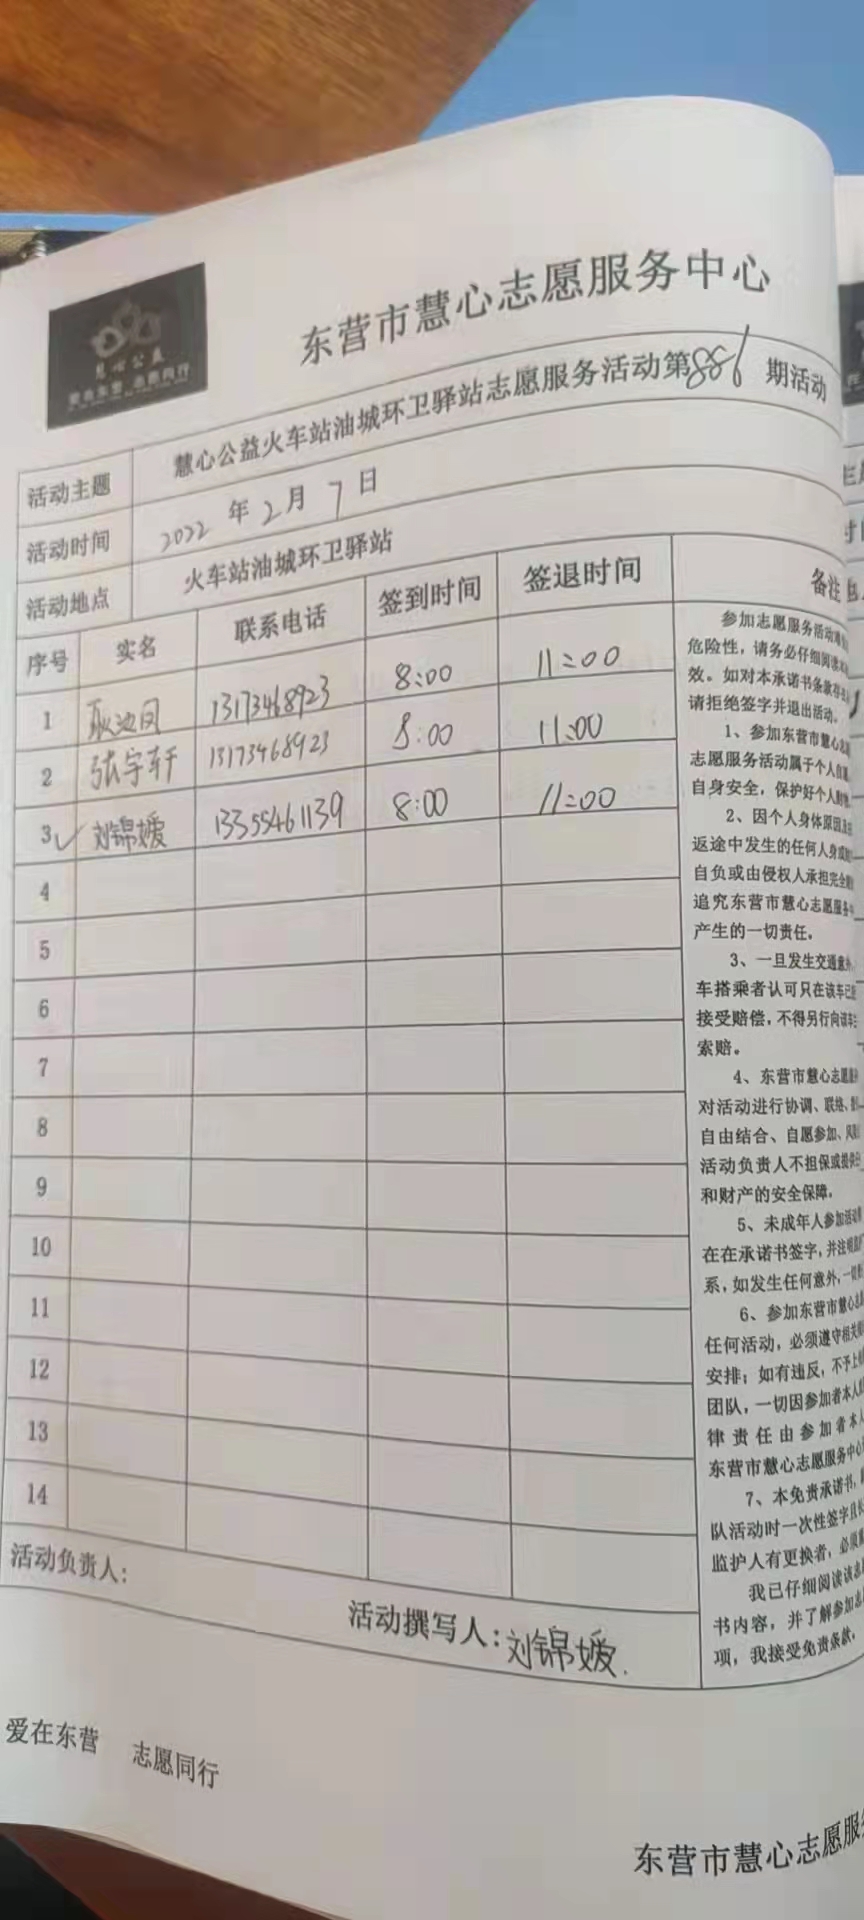 慧心公益
爱在东营 志愿同行
东营市慧心志愿服务中心
活动主题 慧心公益火车站油城环卫驿站志愿服务活动第886期活动
活动时间 2022年2月7日
活动地点 火车站油城环卫驿站
序号 实名 联系电话 签到时间 签退时间 备注
1 耿 13173468923 8:00 11:00
2 张宇轩 13173468923 8:00 11:00
3 ✓ 刘锦媛 13355461139 8:00 11:00
4
5
6
7
8
9
10
11
12
13
14
参加志愿服务活动
危险性，请务必仔细阅读
效。如对本承诺书条款存
请拒绝签字并退出活动。
1、参加东营市慧心
志愿服务活动属于个人自
自身安全，保护好个人财
2、因个人身体原因及
返途中发生的任何人身或
自负或由侵权人承担完全
追究东营市慧心志愿服务
产生的一切责任。
3、一旦发生交通意外，
车搭乘者认可只在该车已
接受赔偿，不得另行向该车
索赔。
4、东营市慧心志愿
对活动进行协调、联络、
自由结合、自愿参加、风
活动负责人不担保或提供
和财产的安全保障。
5、未成年人参加活动
在在承诺书签字，并注明
系，如发生任何意外，一切
6、参加东营市慧心
任何活动，必须遵守相关
安排；如有违反，不予上
团队，一切因参加者本人
律责任由参加者本人
东营市慧心志愿服务中心
7、本免责承诺书，
队活动时一次性签字且长
监护人有更换者，必须
我已仔细阅读该
书内容，并了解参加
项，我接受免责条款。
活动负责人：
活动撰写人：刘锦媛
爱在东营 志愿同行
东营市慧心志愿服